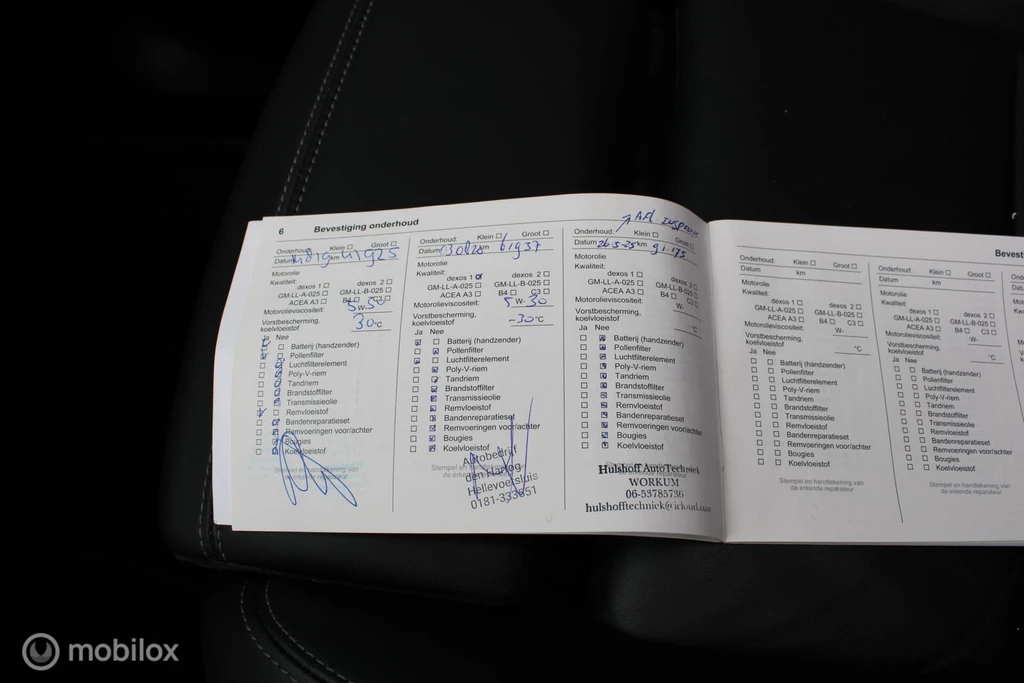 6 Bevestiging onderhoud
Onderhoud: Klein ☐ Groot ☐
Datum km
Motorolie
Kwaliteit:
dexos 1 ☐ dexos 2 ☐
GM-LL-A-025 ☐ GM-LL-B-025 ☐
ACEA A3 ☐ B4 ☐ C3 ☐
Motorolieviscositeit: 5 W- 30
Vorstbescherming,
koelvloeistof 30 °C
Ja Nee
Batterij (handzender)
Pollenfilter
Luchtfilterelement
Poly-V-riem
Tandriem
Brandstoffilter
Transmissieolie
Remvloeistof
Bandenreparatieset
Remvoeringen voor/achter
Bougies
Koelvloeistof
Stempel en handtekening van
de erkende reparateur
Onderhoud: Klein ☐ Groot ☐
Datum km 61937
Motorolie
Kwaliteit:
dexos 1 ☑ dexos 2 ☐
GM-LL-A-025 ☐ GM-LL-B-025 ☐
ACEA A3 ☐ B4 ☐ C3 ☐
Motorolieviscositeit: 5 W- 30
Vorstbescherming,
koelvloeistof -30 °C
Ja Nee
Batterij (handzender)
Pollenfilter
Luchtfilterelement
Poly-V-riem
Tandriem
Brandstoffilter
Transmissieolie
Remvloeistof
Bandenreparatieset
Remvoeringen voor/achter
Bougies
Koelvloeistof
Stempel en handtekening
de erkende
Autobedrijf
den Hartog
Hellevoetsluis
Afl
Onderhoud: Klein ☐ Groot ☐
Datum 26-5-25 km 91.175
Motorolie
Kwaliteit:
dexos 1 ☐ dexos 2 ☐
GM-LL-A-025 ☐ GM-LL-B-025 ☐
ACEA A3 ☐ B4 ☐ C3 ☐
Motorolieviscositeit: W-
Vorstbescherming,
koelvloeistof °C
Ja Nee
Batterij (handzender)
Pollenfilter
Luchtfilterelement
Poly-V-riem
Tandriem
Brandstoffilter
Transmissieolie
Remvloeistof
Bandenreparatieset
Remvoeringen voor/achter
Bougies
Koelvloeistof
Hulshoff AutoTechniek
WORKUM
06-53785736
Onderhoud: Klein ☐ Groot ☐
Datum km
Motorolie
Kwaliteit:
dexos 1 ☐ dexos 2 ☐
GM-LL-A-025 ☐ GM-LL-B-025 ☐
ACEA A3 ☐ B4 ☐ C3 ☐
Motorolieviscositeit: W-
Vorstbescherming,
koelvloeistof °C
Ja Nee
Batterij (handzender)
Pollenfilter
Luchtfilterelement
Poly-V-riem
Tandriem
Brandstoffilter
Transmissieolie
Remvloeistof
Bandenreparatieset
Remvoeringen voor/achter
Bougies
Koelvloeistof
Stempel en handtekening van
de erkende reparateur
Onderhoud: Klein ☐ Groot ☐
Datum km
Motorolie
Kwaliteit:
dexos 1 ☐ dexos 2 ☐
GM-LL-A-025 ☐ GM-LL-B-025 ☐
ACEA A3 ☐ B4 ☐ C3 ☐
Motorolieviscositeit: W-
Vorstbescherming,
koelvloeistof °C
Ja Nee
Batterij (handzender)
Pollenfilter
Luchtfilterelement
Poly-V-riem
Tandriem
Brandstoffilter
Transmissieolie
Remvloeistof
Bandenreparatieset
Remvoeringen voor/achter
Bougies
Koelvloeistof
Stempel en handtekening van
de erkende reparateur
mobilox